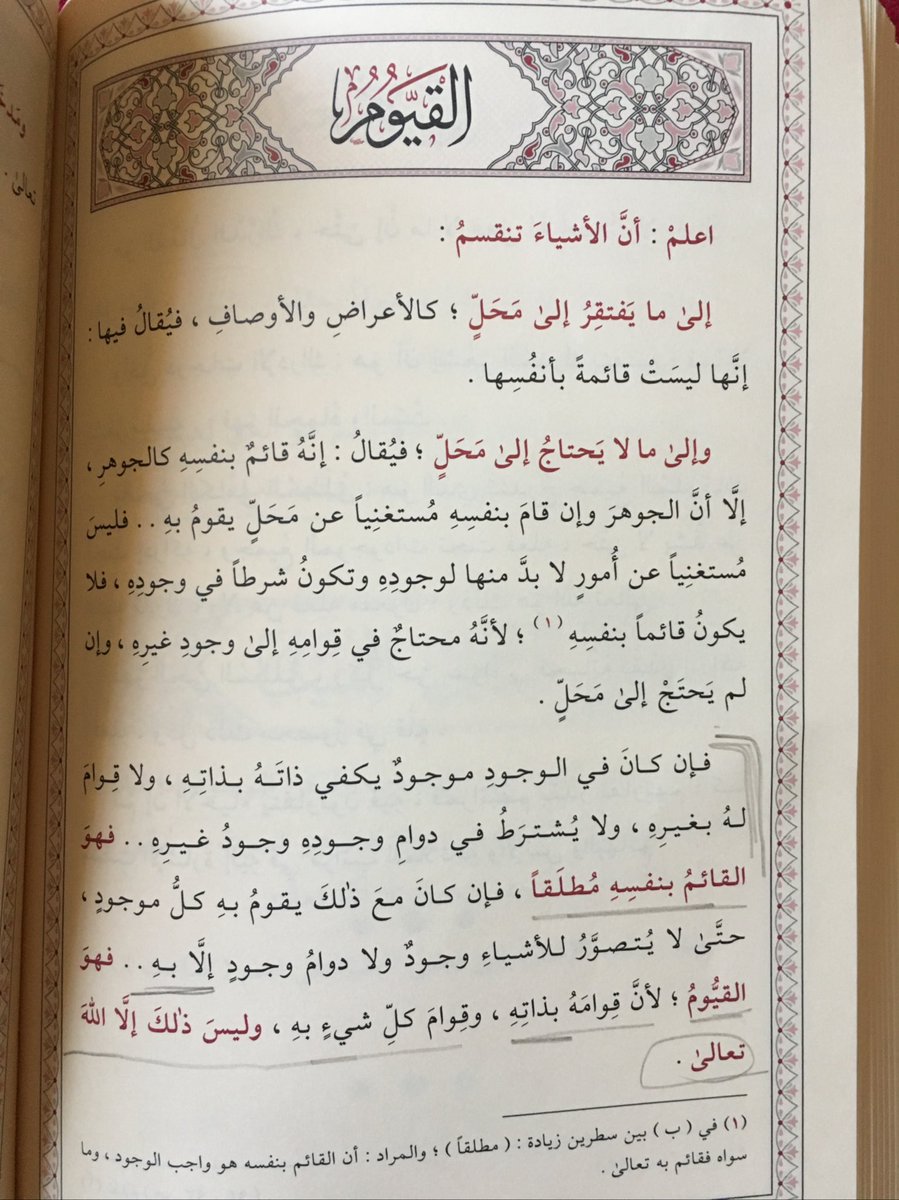 القَيُّومُ
اعلمْ : أنَّ الأشياءَ تنقسمُ :
إلىٰ ما يَفتقِرُ إلىٰ مَحَلٍّ ؛ كالأعراضِ والأوصافِ ، فيُقالُ فيها :
إنَّها ليسَتْ قائمةً بأنفُسِها .
وإلىٰ ما لا يَحتاجُ إلىٰ مَحَلٍّ ؛ فيُقالُ : إنَّهُ قائمٌ بنفسِهِ كالجوهرِ ،
إلَّا أنَّ الجوهرَ وإن قامَ بنفسِهِ مُستغنِياً عن مَحَلٍّ يقومُ بهِ . . فليسَ
مُستغنِياً عن أُمورٍ لا بدَّ منها لوجودِهِ وتكونُ شرطاً في وجودِهِ ، فلا
يكونُ قائماً بنفسِهِ (١) ؛ لأنَّهُ محتاجٌ في قِوامِهِ إلىٰ وجودِ غيرِهِ ، وإن
لم يَحتَجْ إلىٰ مَحَلٍّ .
فإن كانَ في الوجودِ موجودٌ يكفي ذاتَهُ بذاتِهِ ، ولا قِوامَ
لهُ بغيرِهِ ، ولا يُشترَطُ في دوامِ وجودِهِ وجودُ غيرِهِ . . فهوَ
القائمُ بنفسِهِ مُطلَقاً ، فإن كانَ معَ ذٰلكَ يقومُ بهِ كلُّ موجودٍ ،
حتَّىٰ لا يُتصوَّرُ للأشياءِ وجودٌ ولا دوامُ وجودٍ إلَّا بهِ . . فهوَ
القيُّومُ ؛ لأنَّ قِوامَهُ بذاتِهِ ، وقِوامَ كلِّ شيءٍ بهِ ، وليسَ ذٰلكَ إلَّا اللهَ
تعالىٰ .
(١) في ( ب ) بين سطرين زيادة : ( مطلقاً ) ؛ والمراد : أن القائم بنفسه هو واجب الوجود ، وما
سواه فقائم به تعالىٰ .
تعالىٰ .